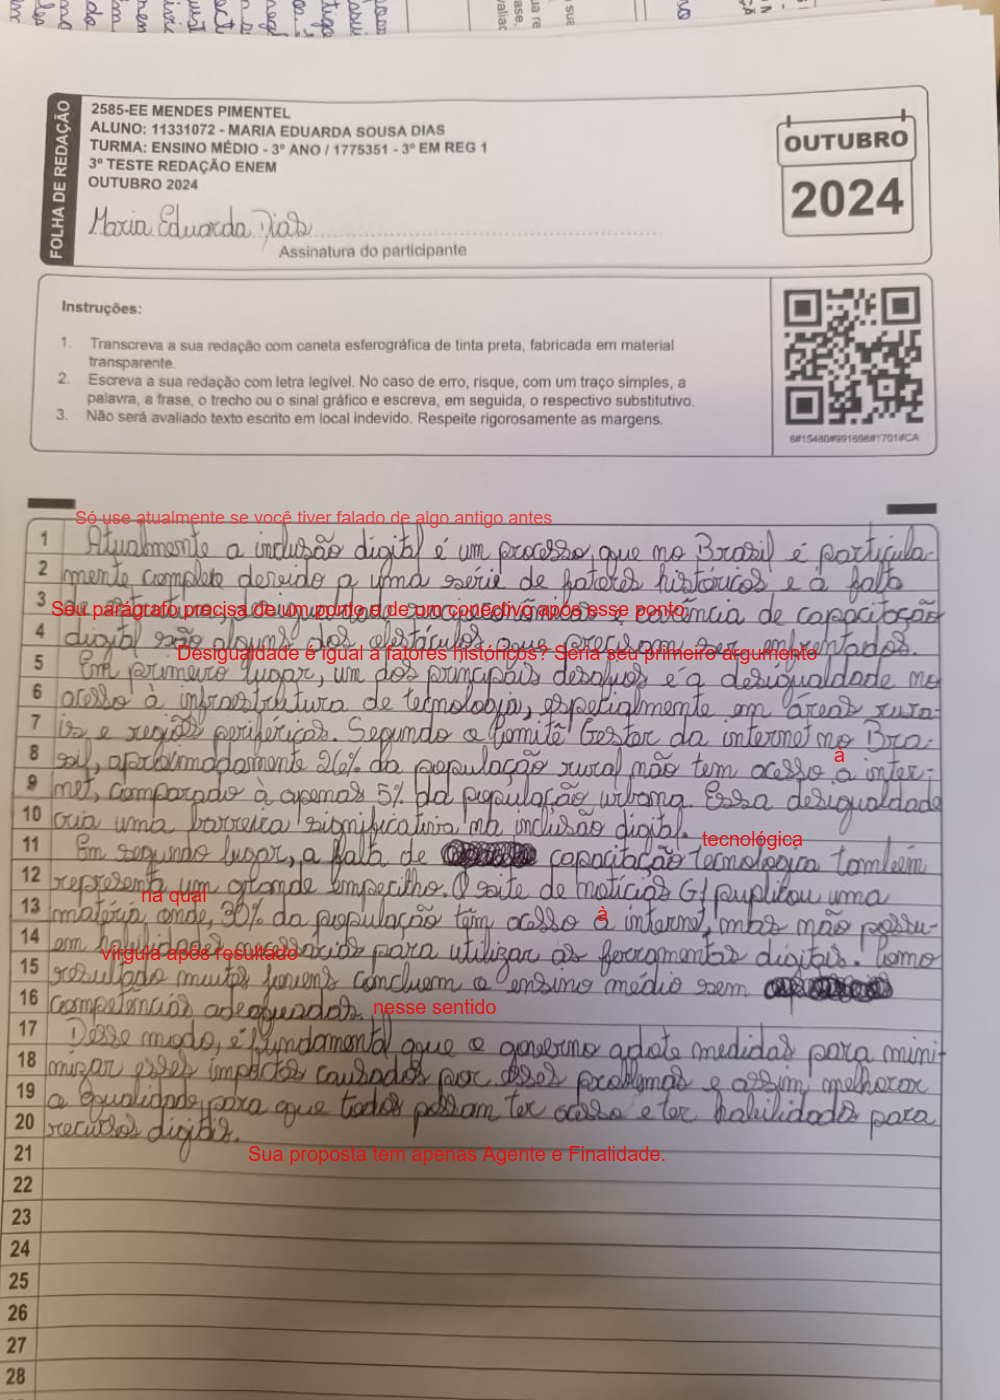 FOLHA DE REDAÇÃO
2585-EE MENDES PIMENTEL
ALUNO: 11331072 - MARIA EDUARDA SOUSA DIAS
TURMA: ENSINO MÉDIO - 3º ANO / 1775351 - 3º EM REG 1
3º TESTE REDAÇÃO ENEM
OUTUBRO 2024
Maria Eduarda Dias
Assinatura do participante
OUTUBRO
2024
Instruções:
1. Transcreva a sua redação com caneta esferográfica de tinta preta, fabricada em material
transparente.
2. Escreva a sua redação com letra legível. No caso de erro, risque, com um traço simples, a
palavra, a frase, o trecho ou o sinal gráfico e escreva, em seguida, o respectivo substitutivo.
3. Não será avaliado texto escrito em local indevido. Respeite rigorosamente as margens.
6#15480#991698#1701#CA
Só use atualmente se você tiver falado de algo antigo antes
1 Atualmente a inclusão digital é um processo, que no Brasil é particula-
2 mente complete devido a uma série de fatores históricos e à falta
Seu parágrafo precisa de um ponto e de um conectivo após esse ponto
3 de estrutura, desigualdades socioeconômicas e carência de capacitação
4 digital são alguns dos obstáculos que precisam ser enfrentados.
Desigualdade é igual a fatores históricos? Seria seu primeiro argumento
5 Em primeiro lugar, um dos principais desafios é a desigualdade no
6 acesso à infraestrutura de tecnologia, especialmente em áreas rura-
7 is e regiões periféricas. Segundo o Comitê Gestor da internet no Bra-
à
8 sil, aproximadamente 26% da população rural não tem acesso a inter-
9 net, comparado à apenas 5% da população urbana. Essa desigualdade
10 cria uma barreira significativa na inclusão digital.
tecnológica
11 Em segundo lugar, a falta de capacitação tecnologica também
12 representa um grande empecilho. O saite de notícias G1 puplicou uma
na qual
à
13 matéria onde, 30% da população têm acesso a internet, mas não possu-
14 em habilidades necessárias para utilizar as ferramentas digitais. Como
vírgula após resultado
15 resultado muitos jovens concluem o ensino médio sem
16 competências adequadas.
nesse sentido
17 Desse modo, é fundamental que o governo adote medidas para mini-
18 mizar esses impactos causados por esses problemas e assim melhorar
19 a equalidade, para que todos possam ter acesso e ter habilidades para
20 recursos digitais.
21
Sua proposta tem apenas Agente e Finalidade.
22
23
24
25
26
27
28